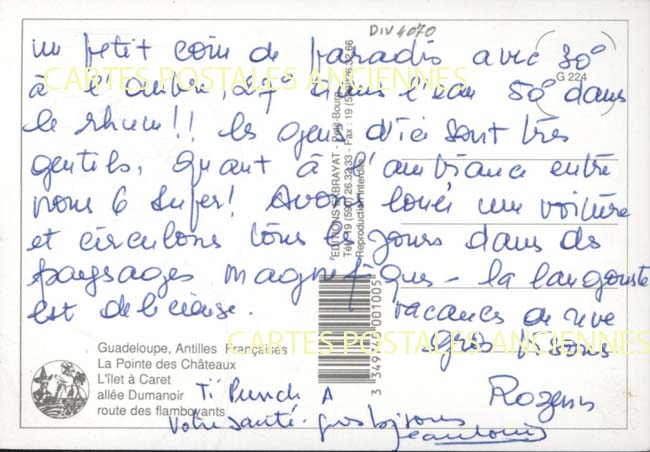 DIV 4070
un petit coin de paradis avec 30°
à l'ombre, 27° dans l'eau 50° dans
le rhum!! les gens d'ici sont très
gentils, quant à l'ambiance entre
nous 6 super! Avons loué une voiture
et circulons tous les jours dans des
paysages magnifiques - la langouste
est delicieuse.
vacances de reve
gros bisous
Rozenn
Ti Punch A
votre santé. gros bisous
Jeanlouis
G 224
CARTES POSTALES ANCIENNES
CARTES POSTALES ANCIENNES
Guadeloupe, Antilles Françaises
La Pointe des Châteaux
L'îlet à Caret
allée Dumanoir
route des flamboyants
EDITIONS EXBRAYAT - Petit-Bourg
Tél. : 19 (590) 26.32.33 - Fax : 19 (590) 26.32.66
Reproduction Interdite
3 349240 001005